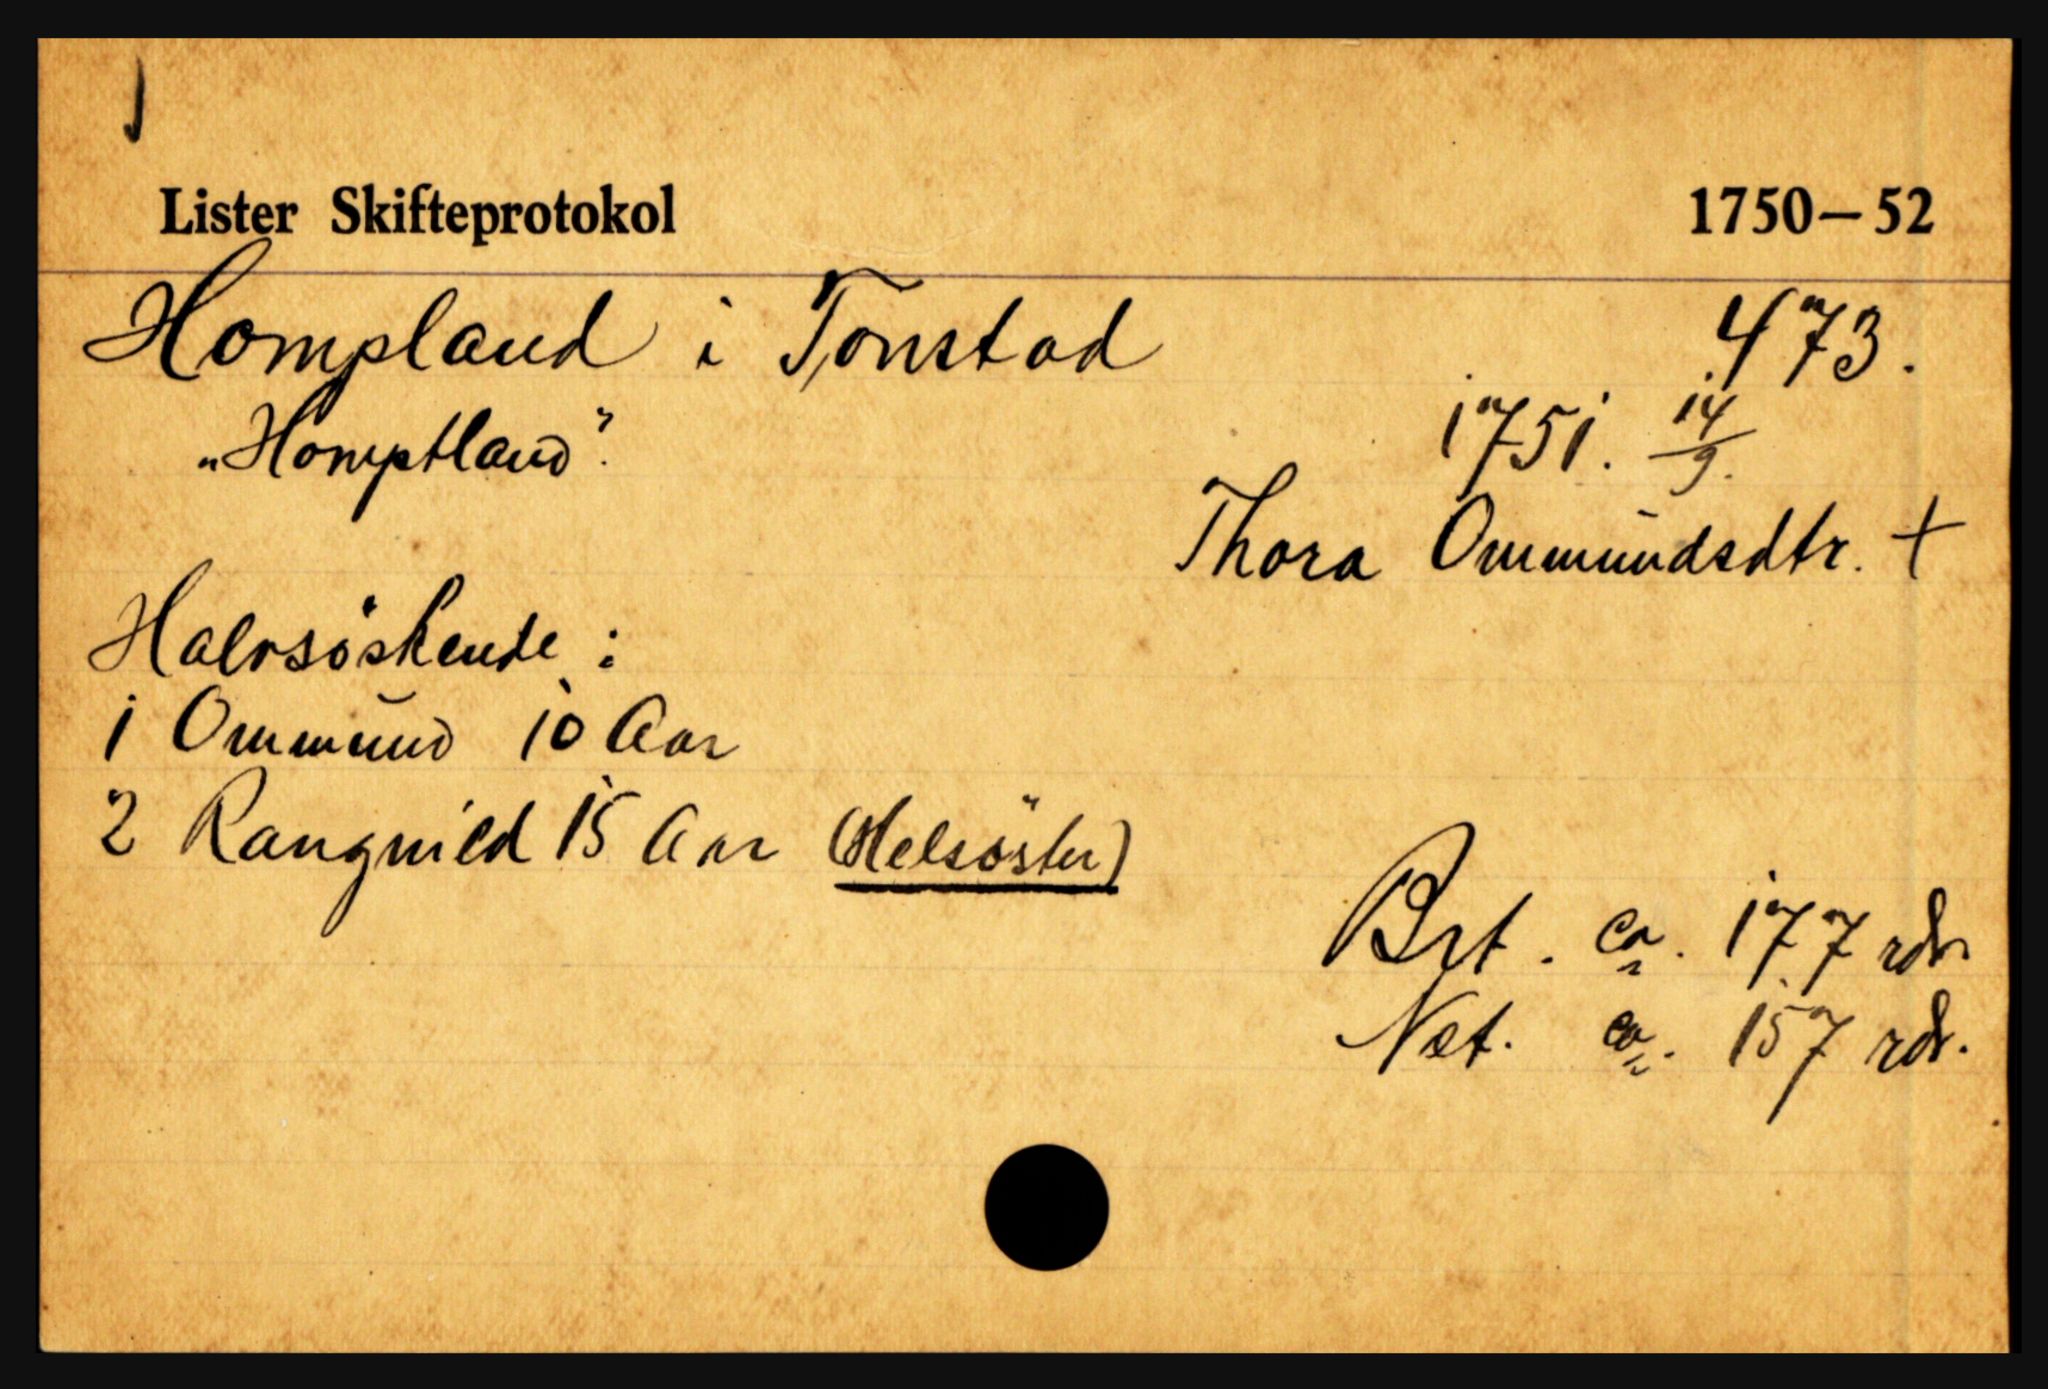 Lister Skifteprotokol 1750–52
Hompland i Tonstad 473.
„Homptland". 1751. 14/9.
Thora Ommundsdtr. +
Halvsöskende :
1 Ommund 10 Aar
2 Rangnild 15 Aar (Helsöster)
Brt. ca. 177 rdr.
Net. ca. 157 rdr.